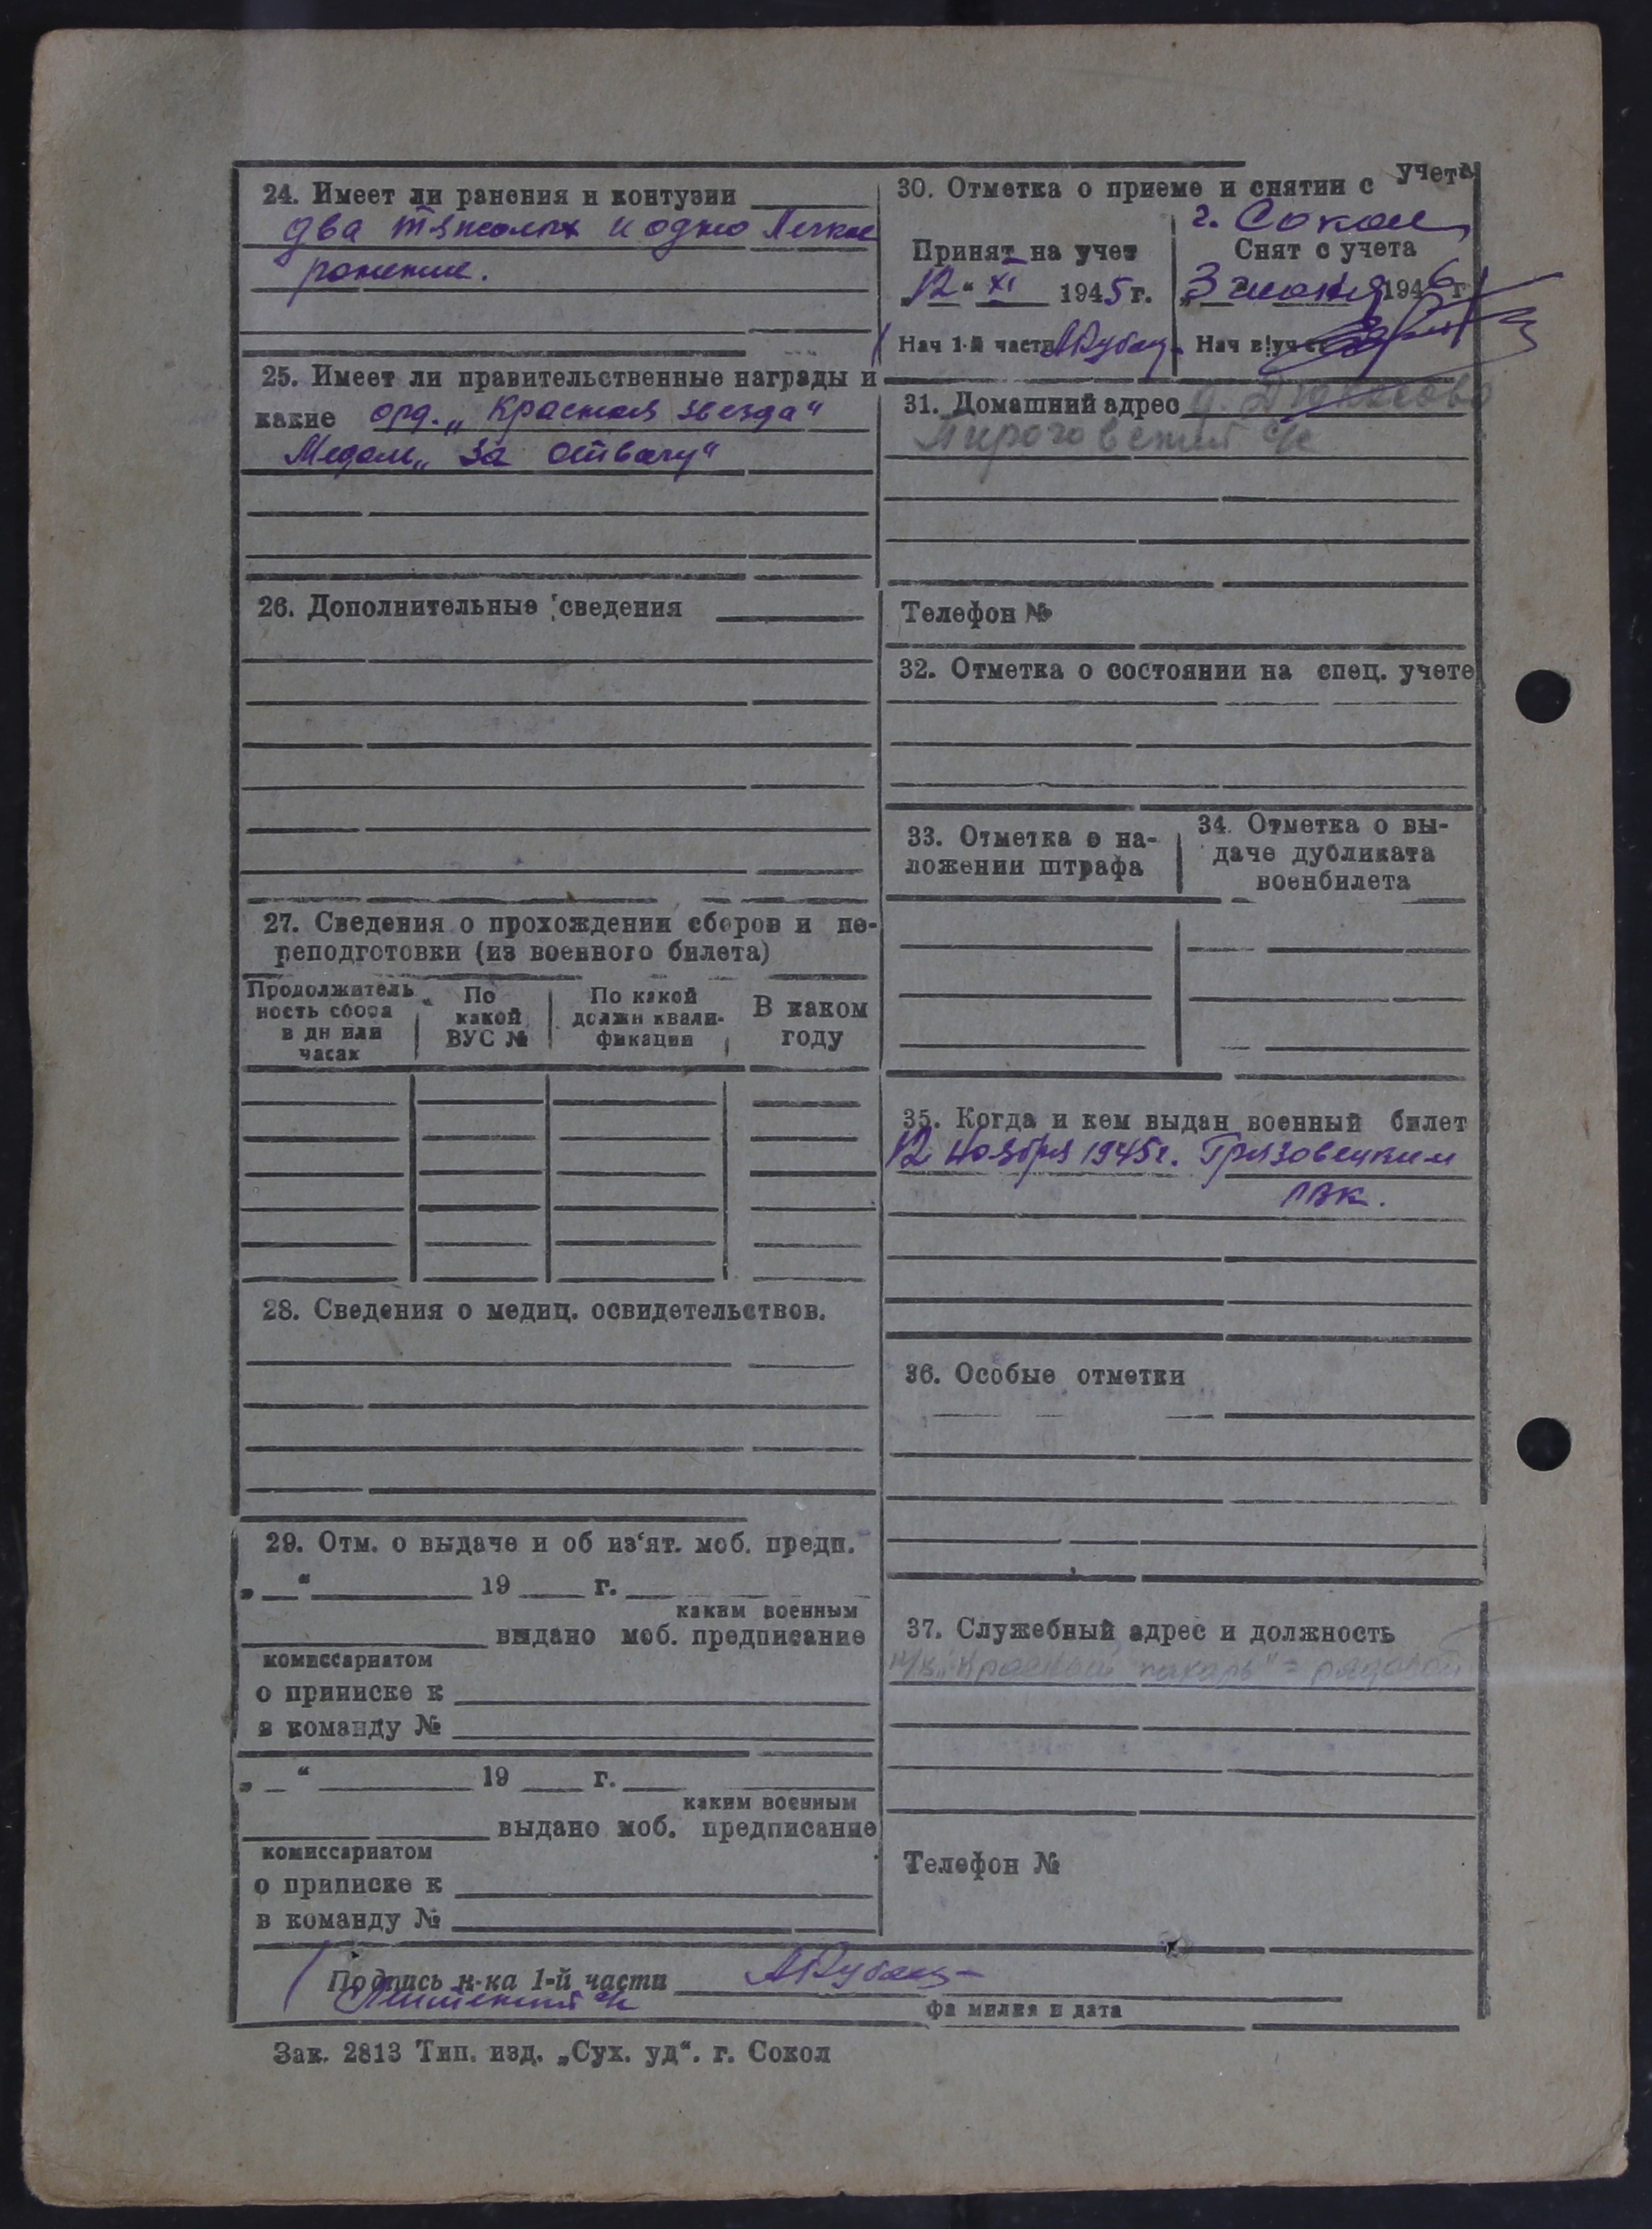 24. Имеет ли ранения и контузии
два тяжолых и одно легкое
ранение.
25. Имеет ли правительственные награды и
какие орд. „Красная звезда"
Медаль „За отвагу"
26. Дополнительные сведения
27. Сведения о прохождении сборов и пе-
реподготовки (из военного билета)
Продолжитель
ность сбора
в дн или
часах
По
какой
ВУС №
По какой
должн квали-
фикации
В каком
году
28. Сведения о медиц. освидетельствов.
29. Отм. о выдаче и об из‘ят. моб. предп.
„ “ 19 г.
каким военным
выдано моб. предписание
комиссариатом
о приписке к
в команду №
„ “ 19 г.
каким военным
выдано моб. предписание
комиссариатом
о приписке к
в команду №
30. Отметка о приеме и снятии с учета
г. Сокол
Принят на учет
„12“ XI 1945 г.
Нач 1-й части
Снят с учета
„3 июня 1946 г
Нач
31. Домашний адрес д.
Пироговский с/с
Телефон №
32. Отметка о состоянии на спец. учете
33. Отметка о на-
ложении штрафа
34. Отметка о вы-
даче дубликата
военбилета
35. Когда и кем выдан военный билет
12 Ноября 1945г. Грязовецким
РВК.
36. Особые отметки
37. Служебный адрес и должность
к/з „Красный пахарь" - рядовой
Телефон №
Подпись н-ка 1-й части
фамилия и дата
Зак. 2813 Тип. изд. „Сух. уд“. г. Сокол